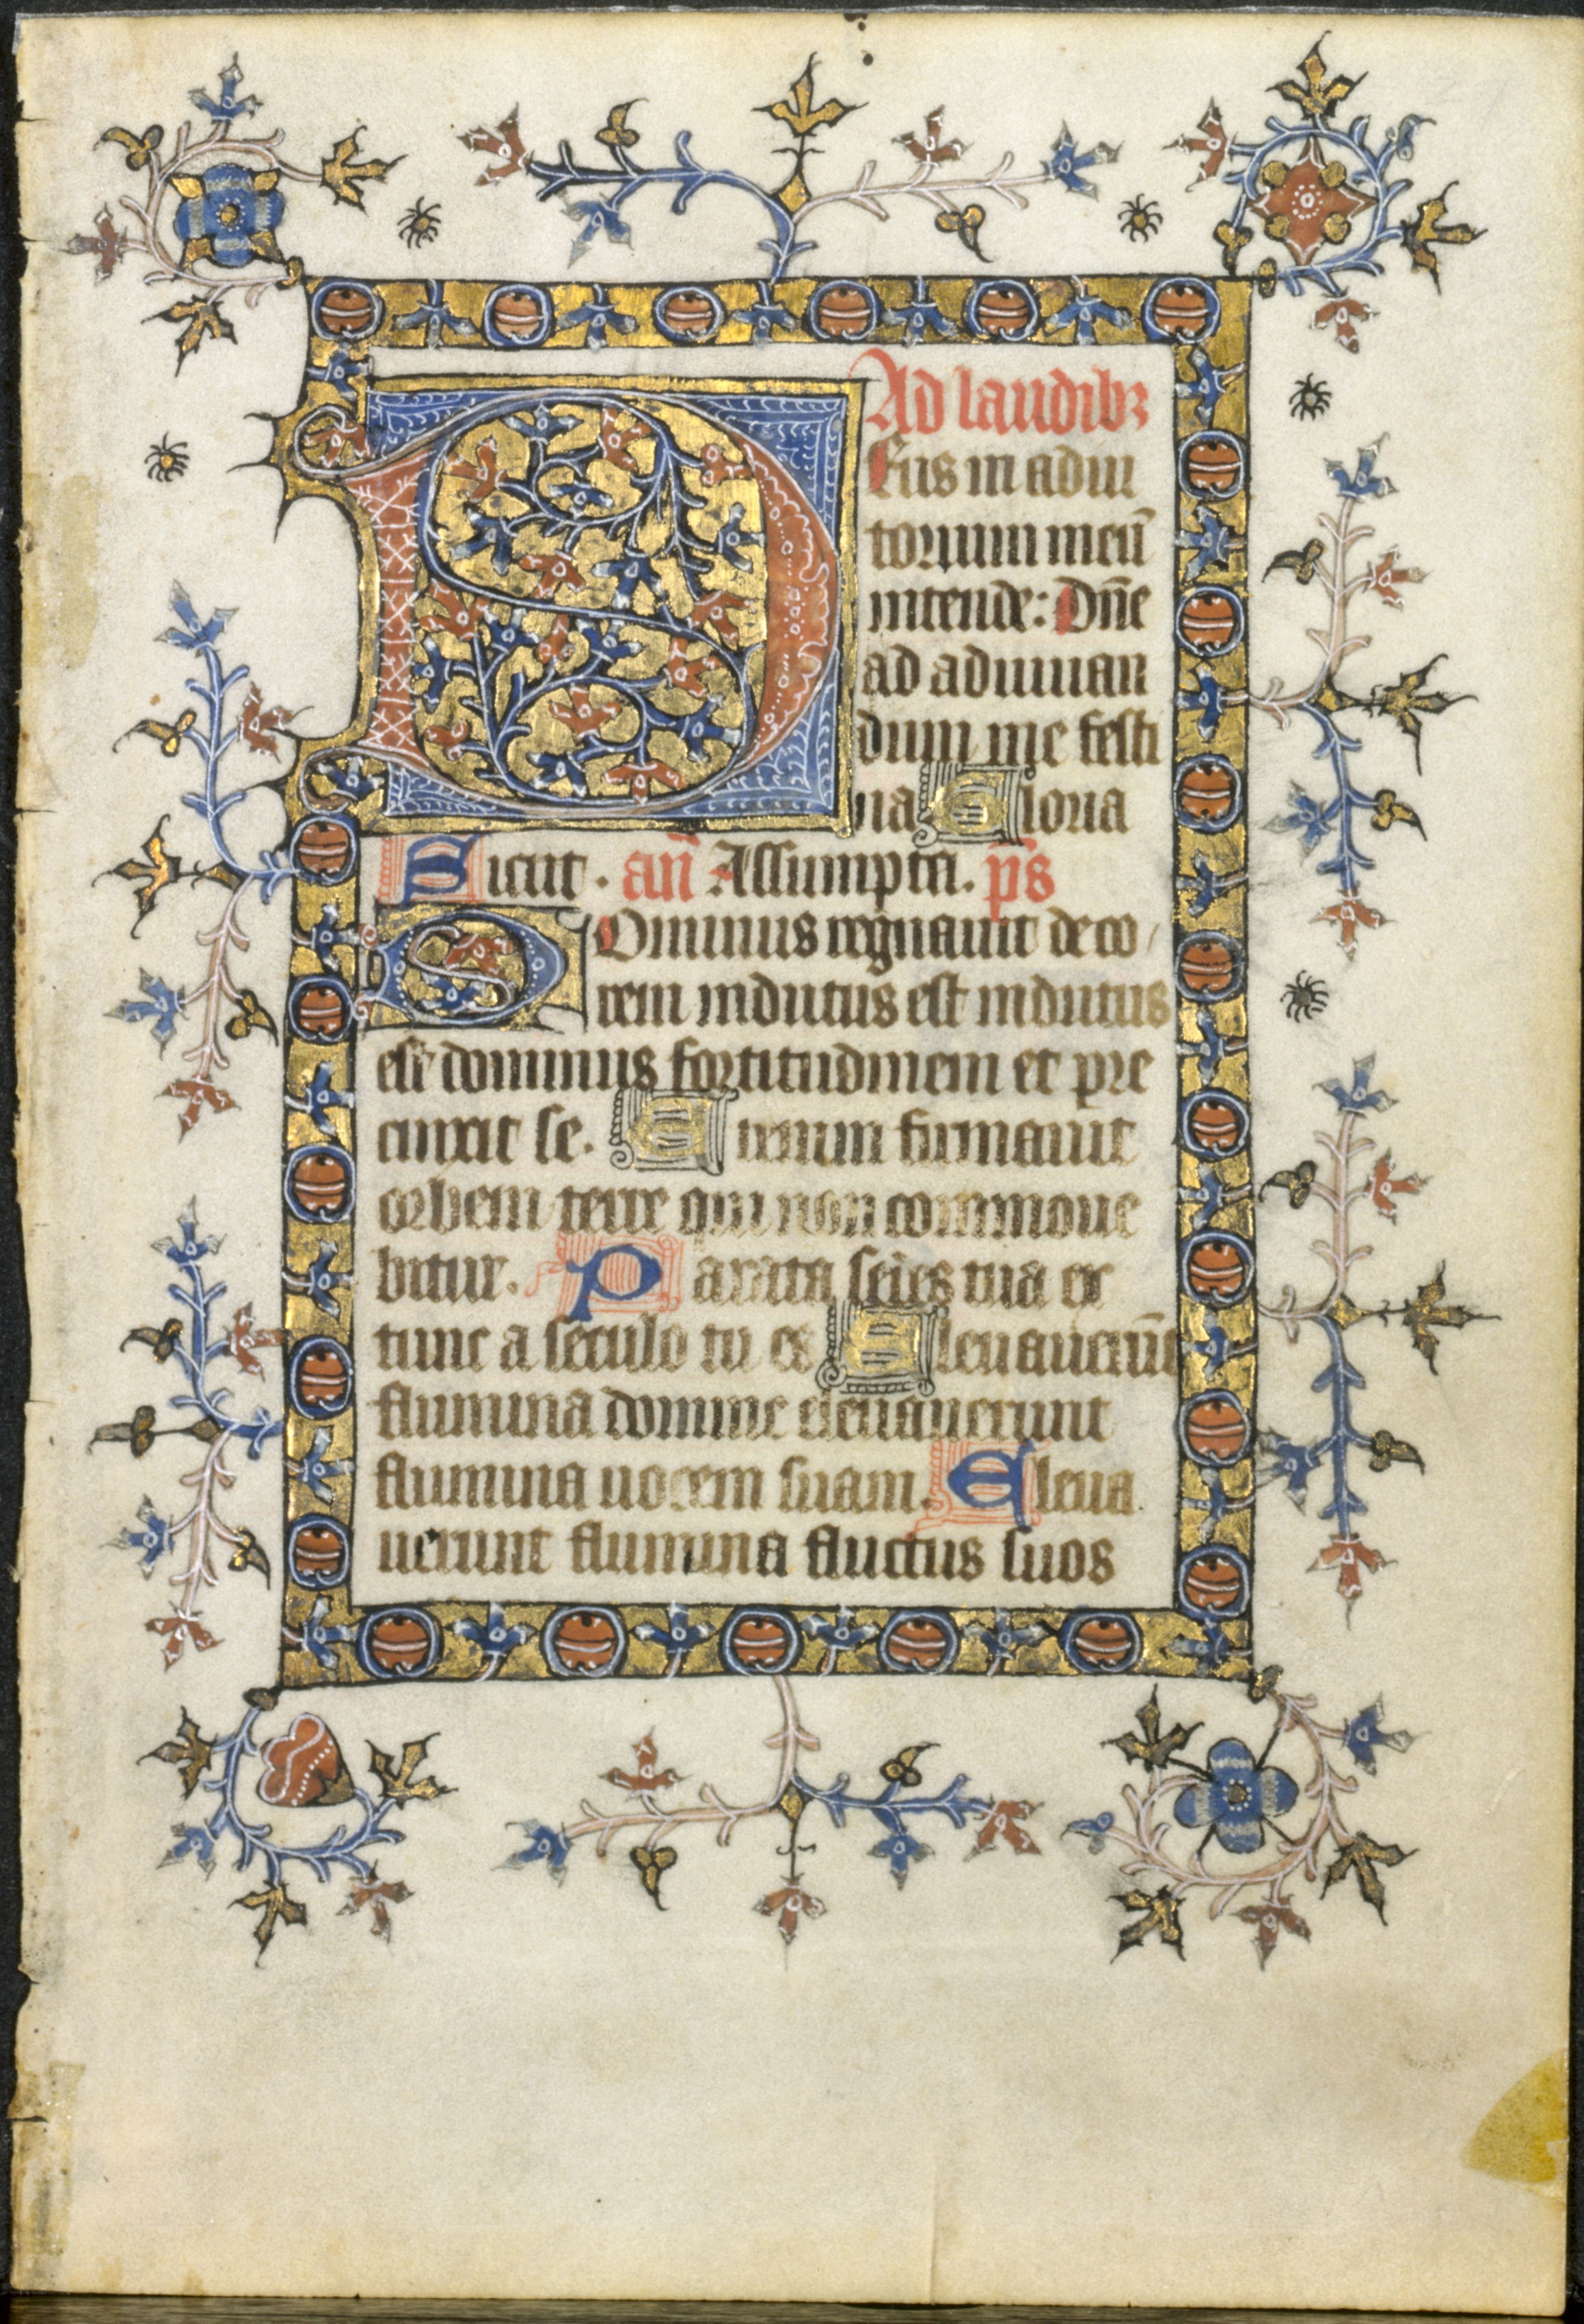 Ad laudibꝫ
Deus in adiu
torium meū
intende: Dn̄e
ad adiuuan
dum me festi
na Gloria
Sicut . an̄ Assumpta. p̄s
Dominus regnauit deco
rem indutus est indutus
est dominus fortitudinem et pre
cinxit se. Etenim firmauit
orbem terre qui non commoue
bitur. Parata sedes tua ex
tunc a seculo tu es Eleuauerūt
flumina domine eleuauerunt
flumina uocem suam. Eleua
uerunt flumina fluctus suos